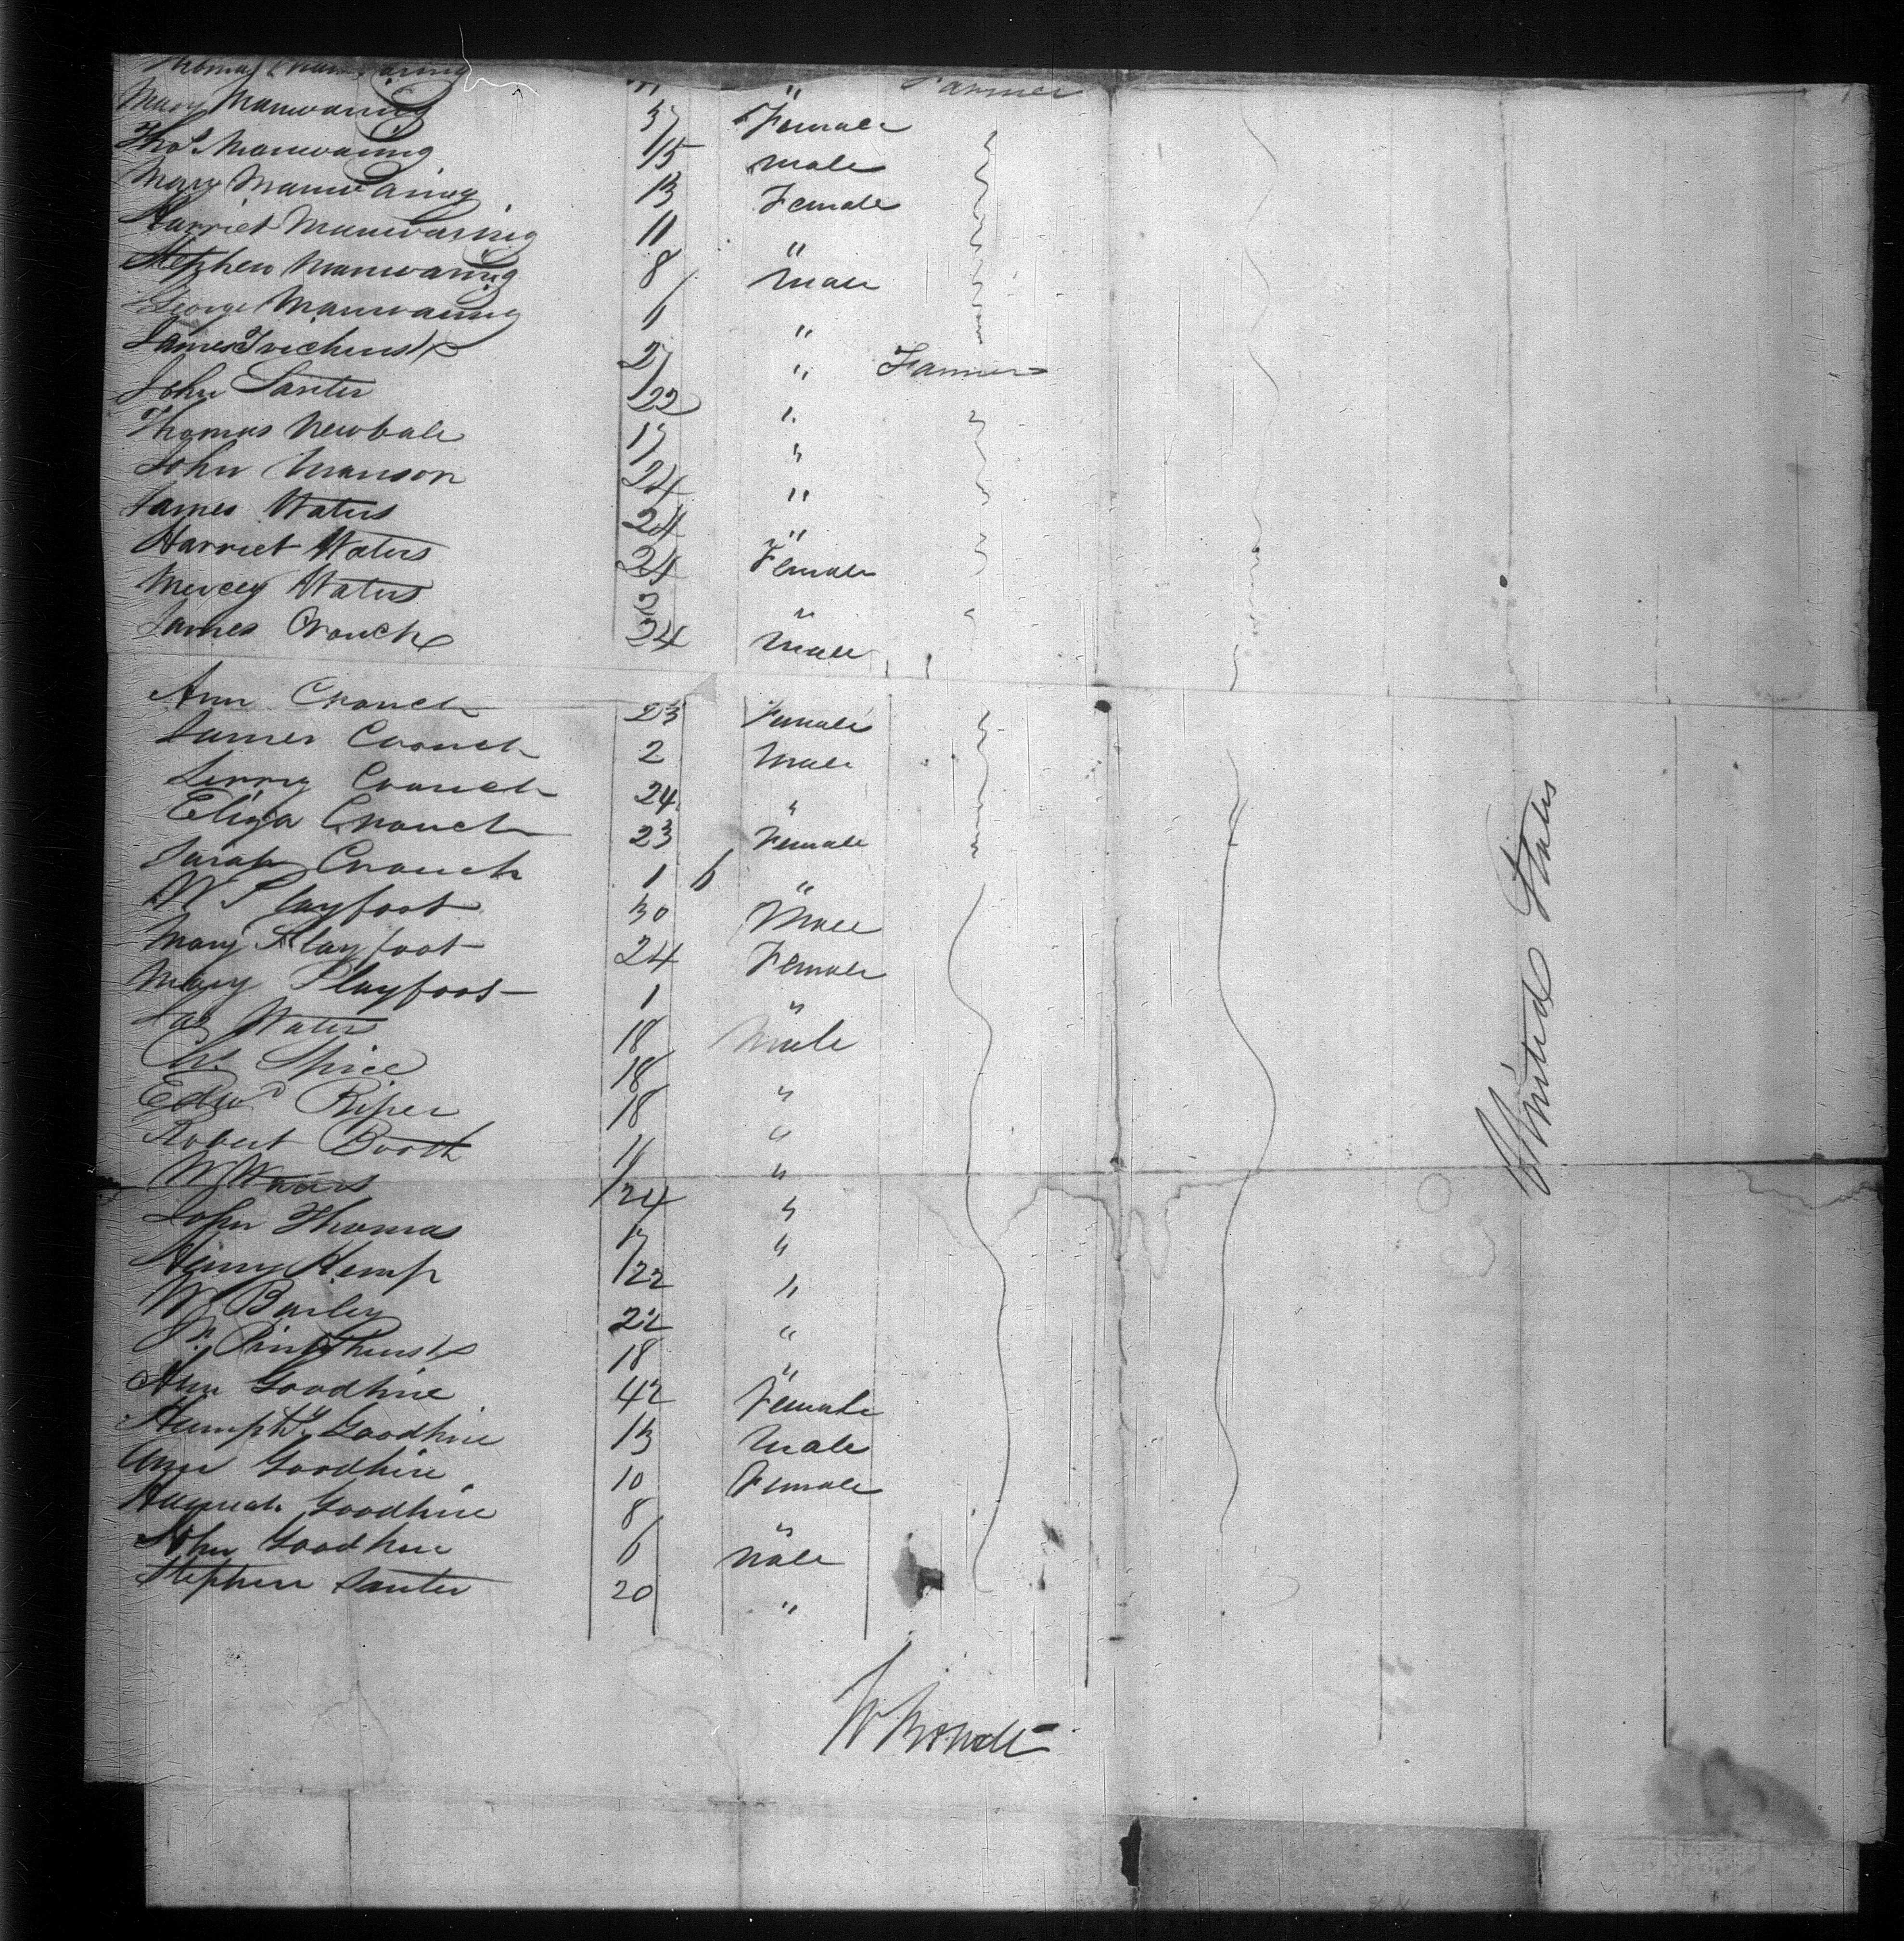 Thomas Manwaring " Farmer
Mary Manwaring 37 Female
Thos Manwaring 15 male
Mary Manwaring 13 Female
Harriet Manwaring 11 "
Stephen Manwaring 8 Male
George Manwaring 6 "
James 27 " Farmer
John Santer 22 "
Thomas Newbale 17 "
John Manson 24 "
James Waters 24 "
Harriet Waters 24 Female
Mercey Waters 2 "
James Crouch 24 Male
Ann Crouch 23 Female
James Crouch 2 Male
Crouch 24 "
Eliza Crouch 23 Female
Sarah Crouch 1 6 "
W Playfoot 30 Male
Mary Playfoot 24 Female
Mary Playfoot 1 "
Jas Waters 18 Male
Chs. Spice 18 "
Edwd Piper 18 "
Robert Booth 11 "
W Waters 24 "
John Thomas 17 "
Henry Kemp 22 "
W Burley 22 "
18 "
Ann Goodhine 42 Female
Humphy Goodhine 13 Male
Ann Goodhine 10 Female
Hannah Goodhine 8 "
John Goodhine 6 Male
Stephen Santer 20 "
United States